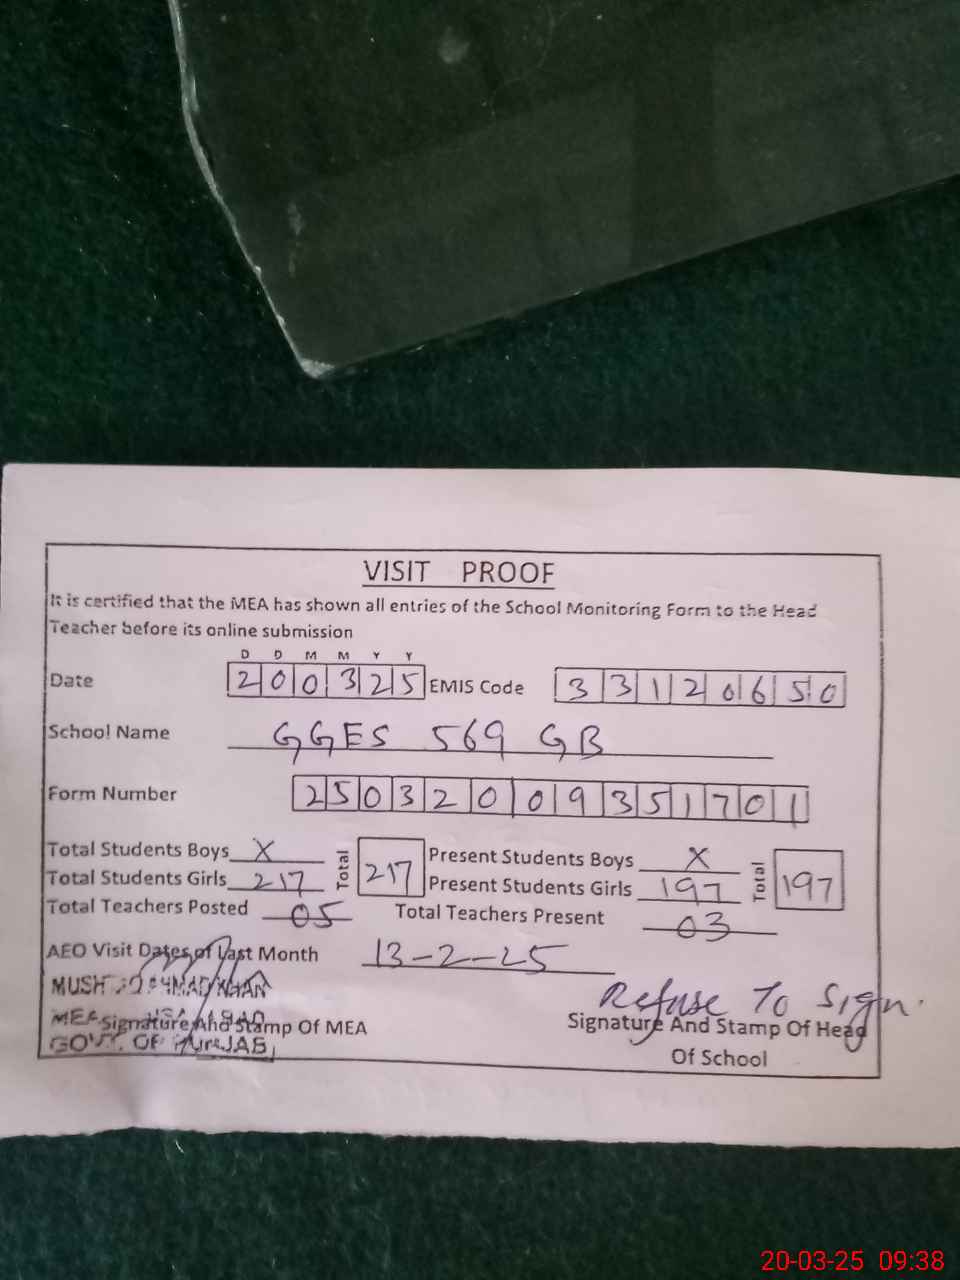 VISIT PROOF
It is certified that the MEA has shown all entries of the School Monitoring Form to the Head
Teacher before its online submission
D D M M Y Y
Date 2 0 0 3 2 5 EMIS Code 3 3 1 2 0 6 5 0
School Name GGES 569 GB
Form Number 2 5 0 3 2 0 0 9 3 5 1 7 0 1
Total Students Boys X Total 217 Present Students Boys X Total 197
Total Students Girls 217 Present Students Girls 197
Total Teachers Posted 05 Total Teachers Present 03
AEO Visit Dates of Last Month 13-2-25
MUSH AHMAD KHAN Refuse To Sign.
MEA
Signature And Stamp Of MEA Signature And Stamp Of Head
GOVT. OF PUNJAB Of School
20-03-25 09:38